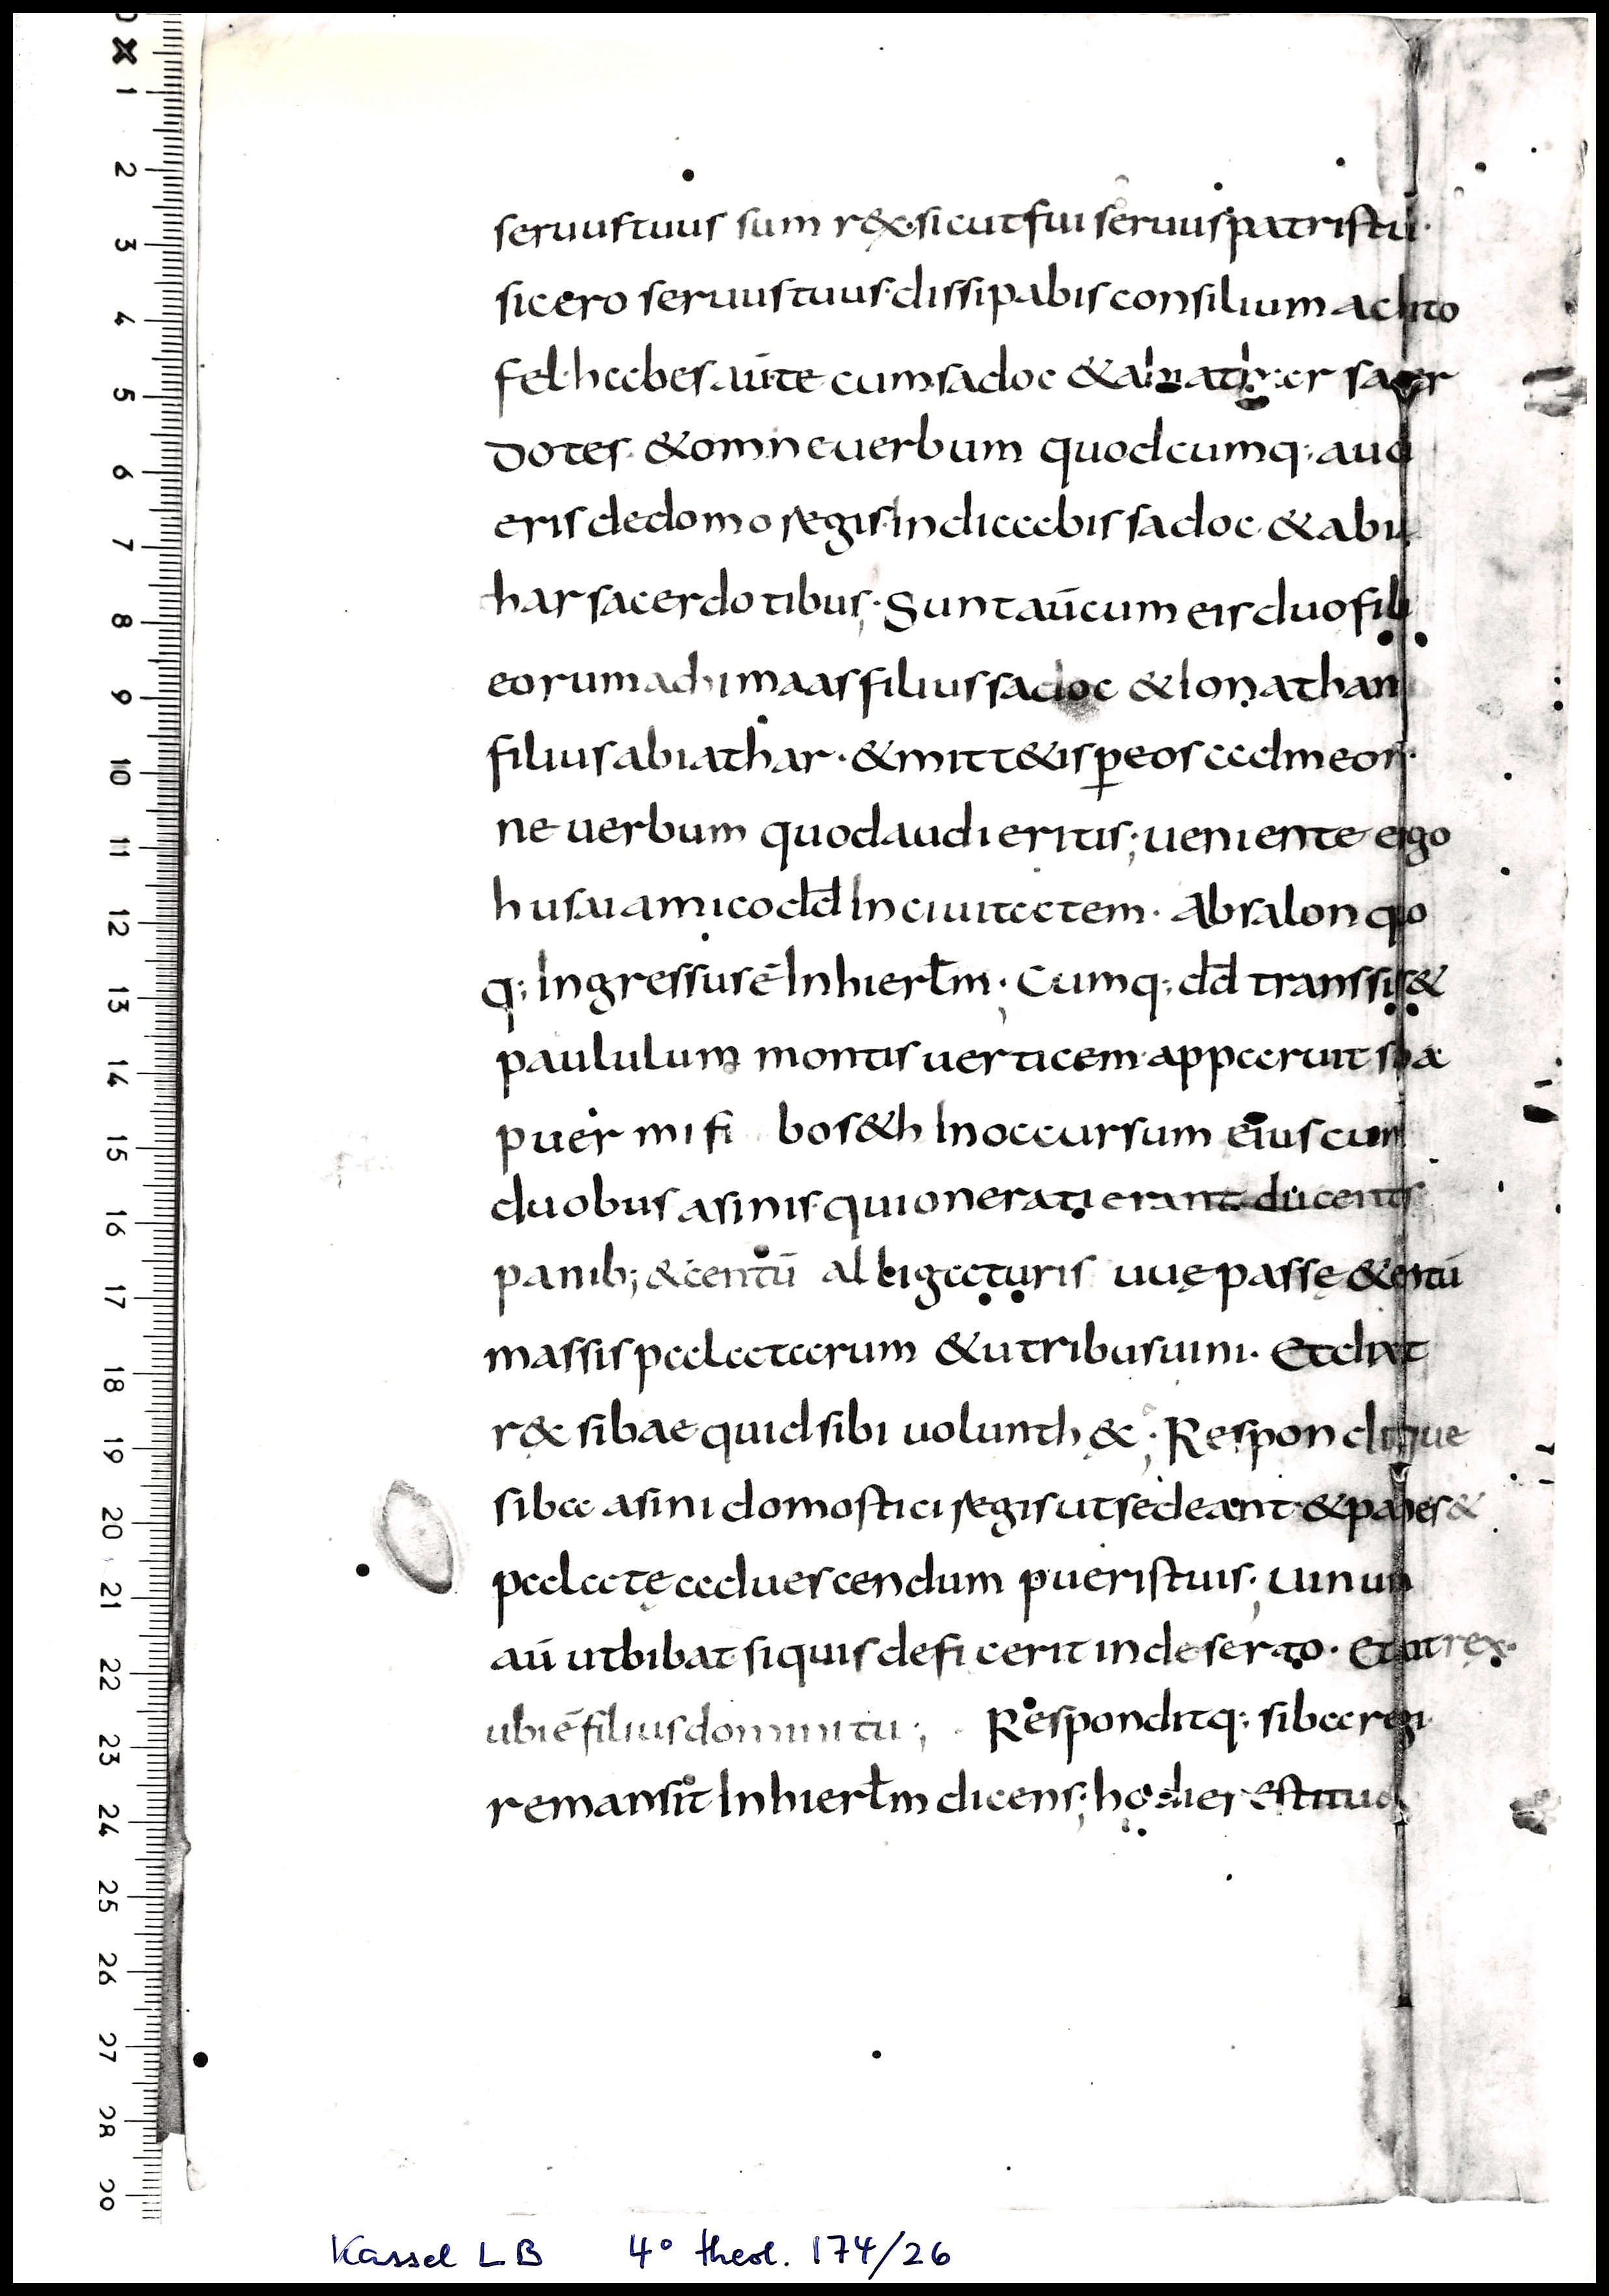 seruus tuus sum rex· sicut fui seruus patris tui·
sic ero seruus tuus· dissipabis consilium achito
fel· habes aūte cum sadoc & abiather sacer
dotes· & omne uerbum quodcumq; aud
eris de domo regis· Indicabis sadoc· & abia
thar sacerdotibus; Sunt aū cum eis duo filii
eorum achimaas filius sadoc & Ionathan
filius abiathar· & mitt&is ꝑ eos ad me om
ne uerbum quod audieritis; ueniente ergo
husai amico dd̄ In ciuitatem· Absalon quo
q; Ingressus ē In hierłm· Cumq; dd̄ transsiss&
paululum montis uerticem· apparuit siba
puer mifi bos&h In occursum eius cum
duobus asinis· qui onerati erant ducentis
panib; & centū alligaturis uuę passę & centū
massis palatarum & utribus uini· Et dixit
rex sibae quid sibi uolunt hęc; Responditque
siba asini domostici regis ut sedeant· & panes &
palatę ad uescendum pueris tuis; uinum
aū ut bibat siquis deficerit in deserto· Et ait rex·
ubi ē filius domini tui; Responditq; siba regi·
remansit In hierłm dicens; hodie restitu&
0 1 2 3 4 5 6 7 8 9 10 11 12 13 14 15 16 17 18 19 20 21 22 23 24 25 26 27 28 29
Kassel LB 4° theol. 174/26